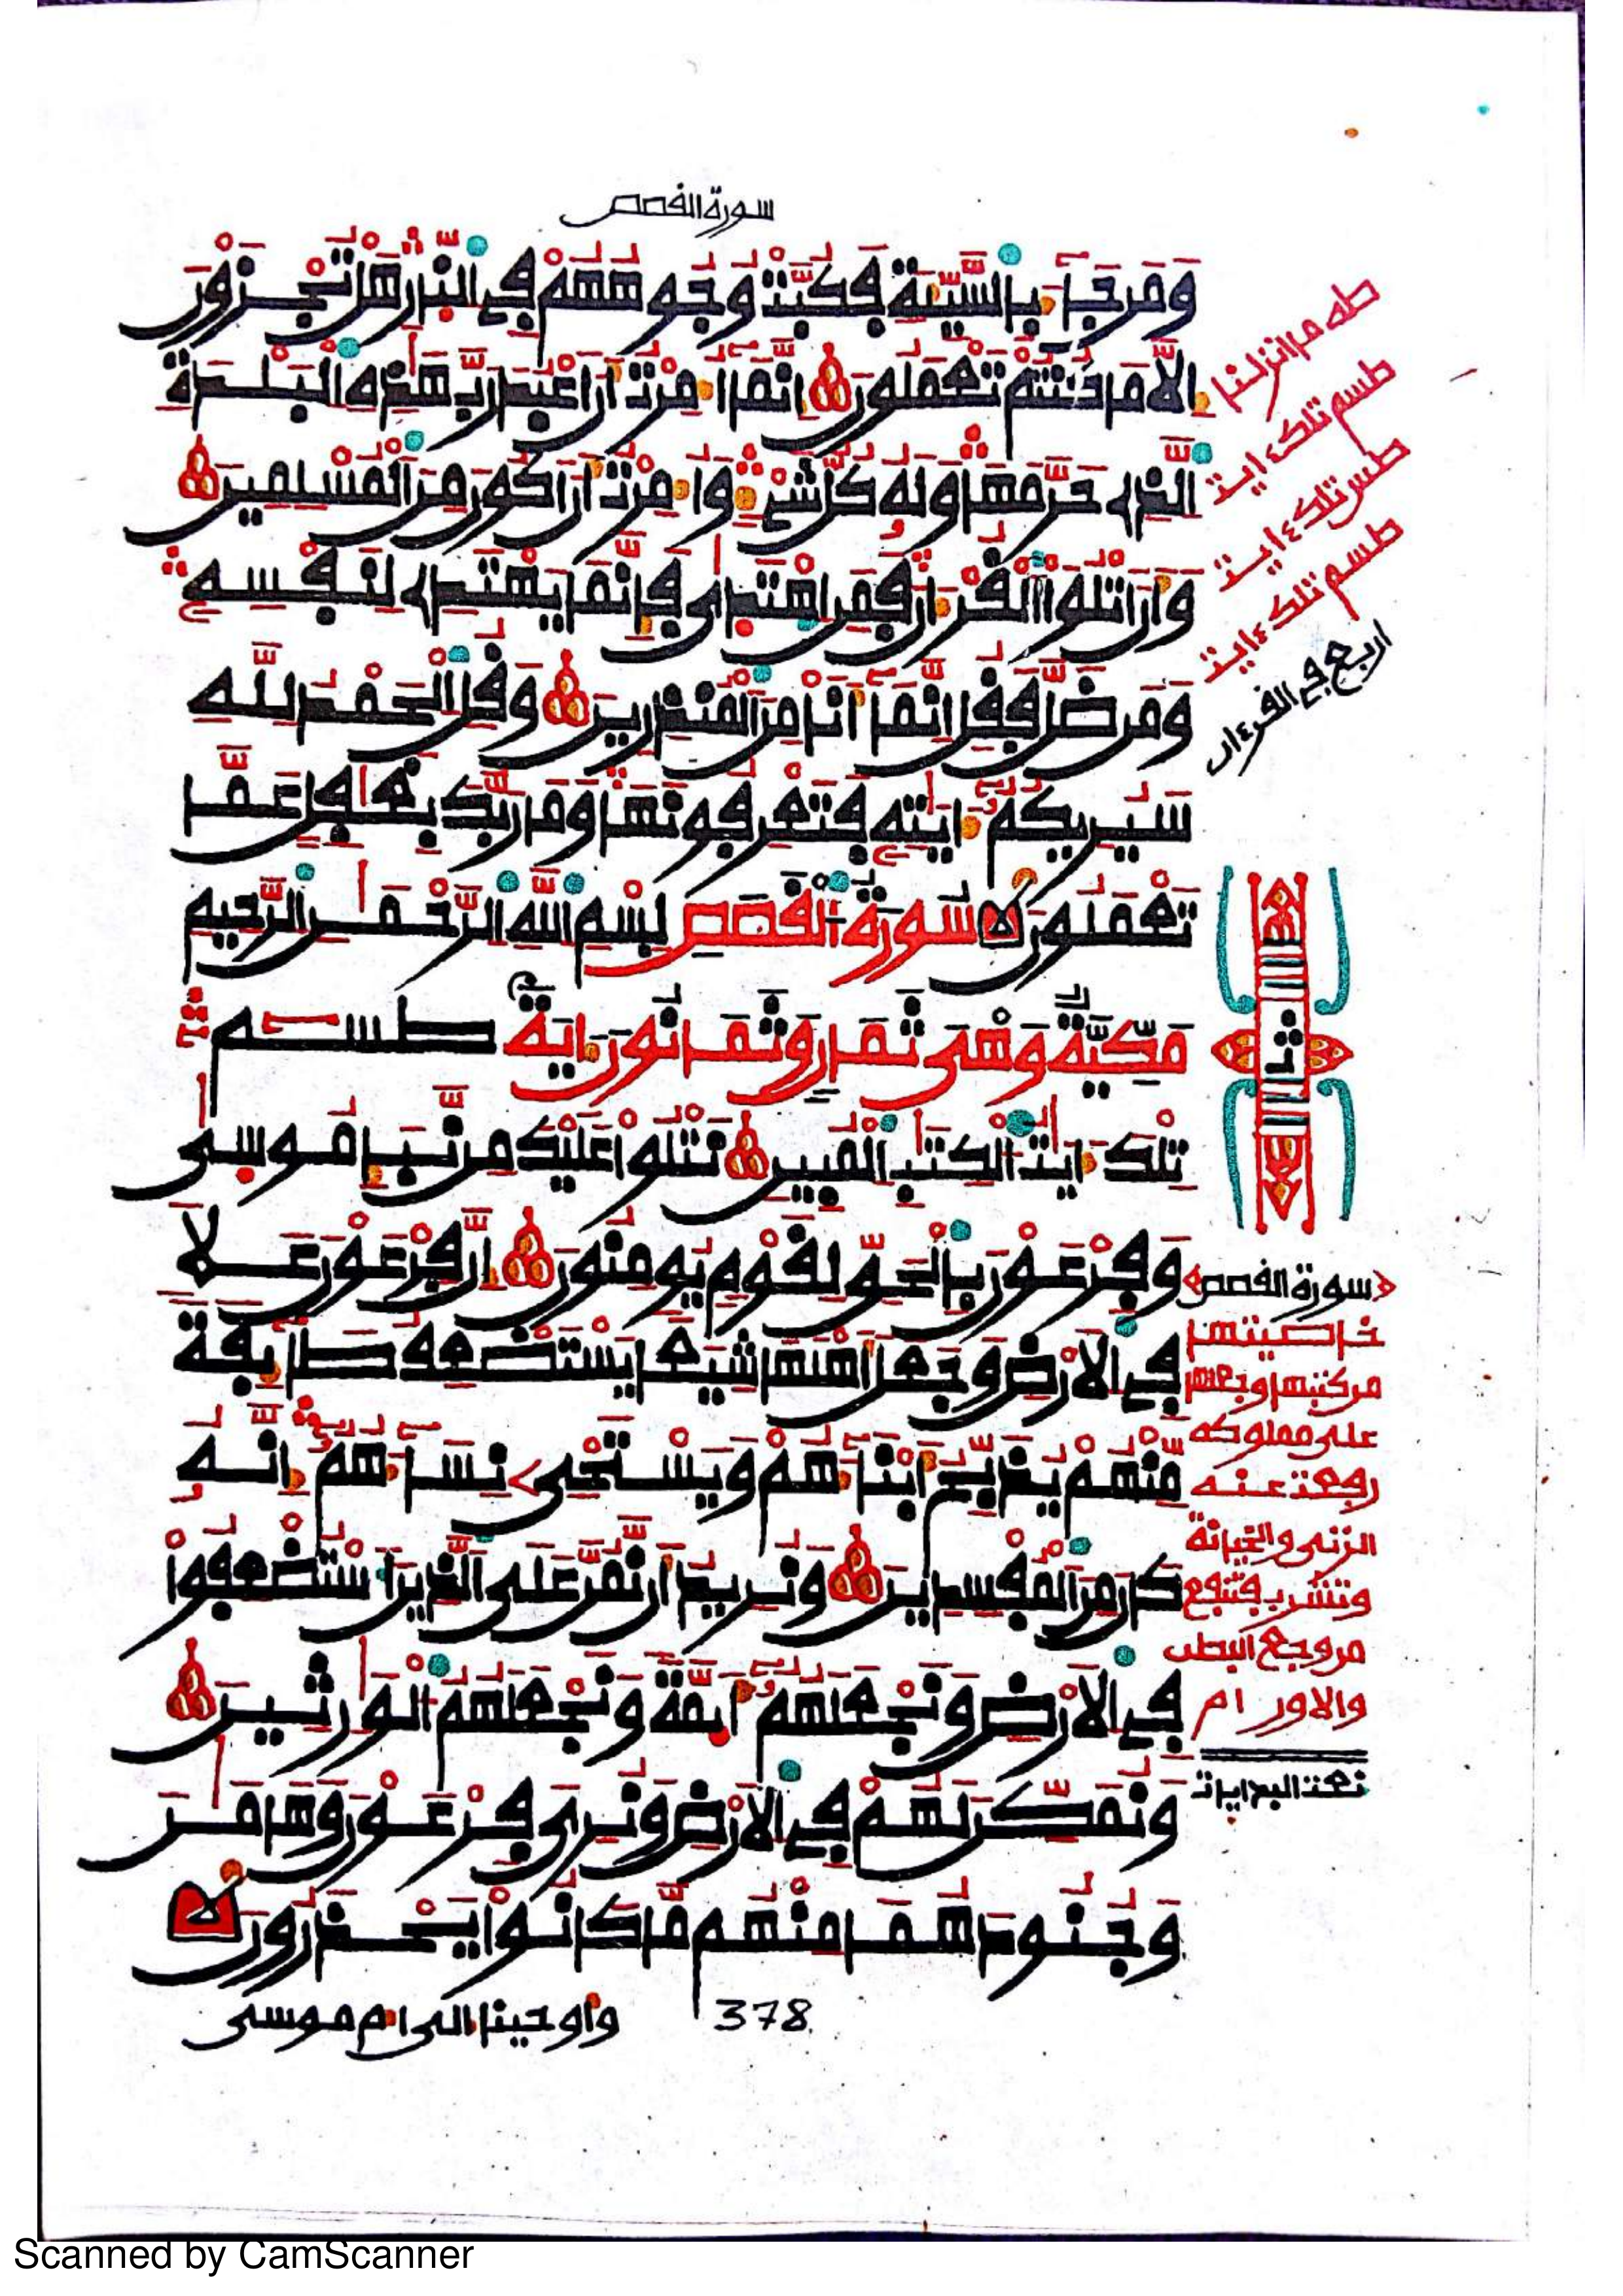 سورة القصص
وَمَن جَآءَ بِالسَّيِّئَةِ فَكُبَّتْ وُجُوهُهُمْ فِي النَّارِ هَلْ تُجْزَوْنَ
إِلَّا مَا كُنتُمْ تَعْمَلُونَ إِنَّمَآ أُمِرْتُ أَنْ أَعْبُدَ رَبَّ هَٰذِهِ الْبَلْدَةِ
الَّذِي حَرَّمَهَا وَلَهُ كُلُّ شَيْءٍ وَأُمِرْتُ أَنْ أَكُونَ مِنَ الْمُسْلِمِينَ
وَأَنْ أَتْلُوَا الْقُرْءَانَ فَمَنِ اهْتَدَىٰ فَإِنَّمَا يَهْتَدِي لِنَفْسِهِ
وَمَن ضَلَّ فَقُلْ إِنَّمَآ أَنَا مِنَ الْمُنذِرِينَ وَقُلِ الْحَمْدُ لِلَّهِ
سَيُرِيكُمُ ءَايَٰتِهِ فَتَعْرِفُونَهَا وَمَا رَبُّكَ بِغَٰفِلٍ عَمَّا
تَعْمَلُونَ سُورَةُ الْقَصَصِ بِسْمِ اللَّهِ الرَّحْمَٰنِ الرَّحِيمِ
مَكِّيَّةٌ وَهِيَ ثَمَانٌ وَثَمَانُونَ ءَايَةً طسٓمٓ
تِلْكَ ءَايَٰتُ الْكِتَٰبِ الْمُبِينِ نَتْلُوا عَلَيْكَ مِن نَّبَإِ مُوسَىٰ
وَفِرْعَوْنَ بِالْحَقِّ لِقَوْمٍ يُومِنُونَ إِنَّ فِرْعَوْنَ عَلَا
فِي الْأَرْضِ وَجَعَلَ أَهْلَهَا شِيَعًا يَسْتَضْعِفُ طَآئِفَةً
مِّنْهُمْ يُذَبِّحُ أَبْنَآءَهُمْ وَيَسْتَحْيِ نِسَآءَهُمُ إِنَّهُ
كَانَ مِنَ الْمُفْسِدِينَ وَنُرِيدُ أَن نَّمُنَّ عَلَى الَّذِينَ اسْتُضْعِفُوا
فِي الْأَرْضِ وَنَجْعَلَهُمُ أَئِمَّةً وَنَجْعَلَهُمُ الْوَٰرِثِينَ
وَنُمَكِّنَ لَهُمْ فِي الْأَرْضِ وَنُرِيَ فِرْعَوْنَ وَهَٰمَٰنَ
وَجُنُودَهُمَا مِنْهُم مَّا كَانُوا يَحْذَرُونَ
وأوحينا إلى أم موسى
378
طه ما انزلنا
طسم تلك ءايت
طس تلك ءايت
طسم تلك ءايت
اربع في القرءان
ثمن
سورة القصص
خاصيتها
من كتبها وجعلها
على مملوكه
رفعت عنه
الزنى والخيانة
وتشرب فتنفع
من وجع البطن
والاورام
نعت البدايات
Scanned by CamScanner